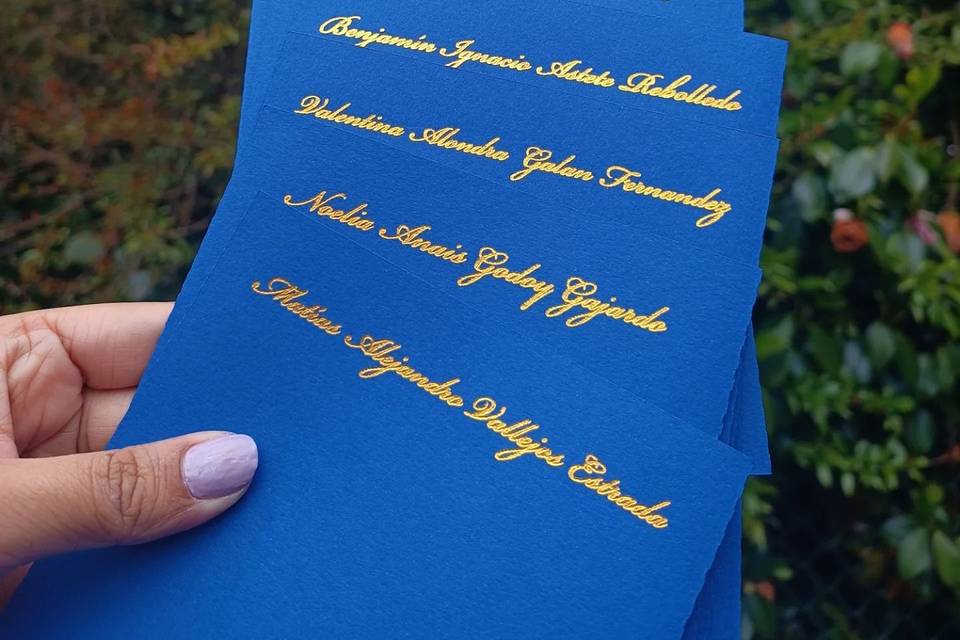 Benjamín Ignacio Astete Rebolledo
Valentina Alondra Galan Fernandez
Noelia Anais Godoy Gajardo
Matías Alejandro Vallejos Estrada